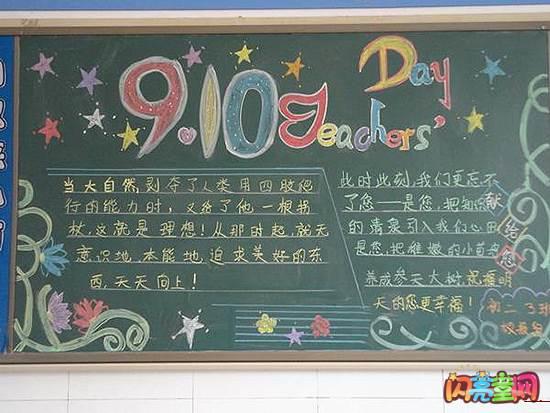 9.10 Teachers' Day
当大自然剥夺了人类用四肢爬
行的能力时,又给了他一根拐
杖,这就是理想!从那时起,就无
意识地,本能地追求美好的东
西,天天向上!
此时此刻,我们更忘不
了您——是您,把知识
的清泉引入我们心田
是您,把稚嫩的小苗
养成参天大树,祝福明
天的您更幸福!
献给您
初二3班
闪亮童网